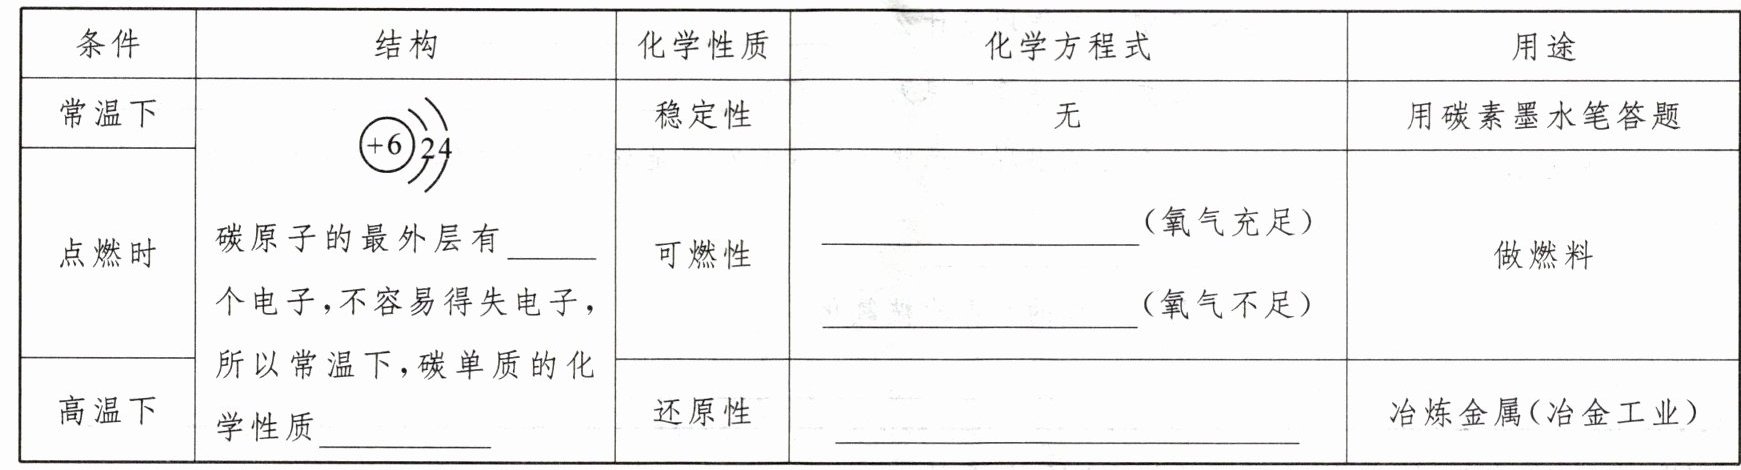 条件 结构 化学性质 化学方程式 用途
常温下 稳定性 无 用碳素墨水笔答题
+6 2 4
碳原子的最外层有______
个电子,不容易得失电子,
所以常温下,碳单质的化
学性质____________
点燃时 可燃性 ______________________(氧气充足) 做燃料
______________________(氧气不足)
高温下 还原性 ________________________________ 冶炼金属(冶金工业)